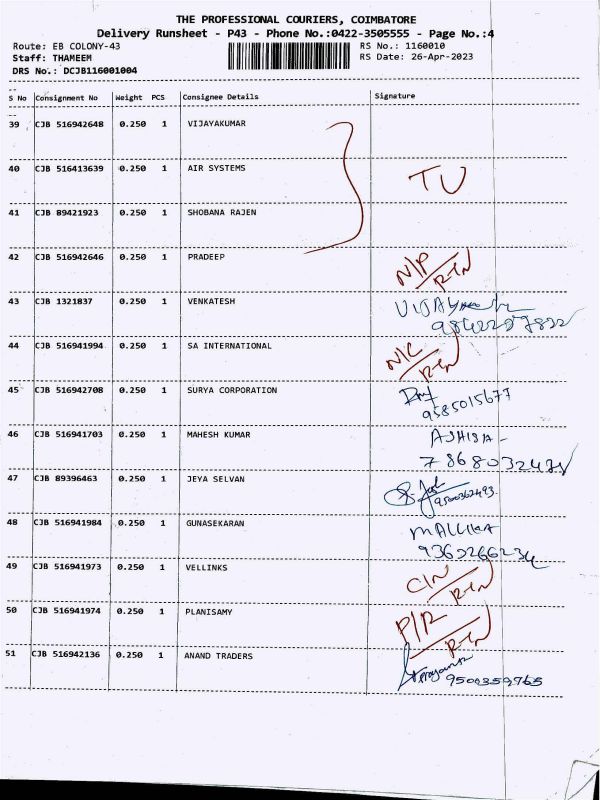 THE PROFESSIONAL COURIERS, COIMBATORE
Delivery Runsheet - P43 - Phone No.:0422-3505555 - Page No.:4
Route: EB COLONY-43 RS No.: 1160010
Staff: THAMEEM RS Date: 26-Apr-2023
DRS No.: DCJB116001004
S No Consignment No Weight PCS Consignee Details Signature
39 CJB 516942648 0.250 1 VIJAYAKUMAR
40 CJB 516413639 0.250 1 AIR SYSTEMS TU
41 CJB 89421923 0.250 1 SHOBANA RAJEN
42 CJB 516942646 0.250 1 PRADEEP N/P
43 CJB 1321837 0.250 1 VENKATESH
44 CJB 516941994 0.250 1 SA INTERNATIONAL N/C
45 CJB 516942708 0.250 1 SURYA CORPORATION
9585015677
46 CJB 516941703 0.250 1 MAHESH KUMAR
47 CJB 89396463 0.250 1 JEYA SELVAN
9500362493
48 CJB 516941984 0.250 1 GUNASEKARAN MALLIKA
9360266234
49 CJB 516941973 0.250 1 VELLINKS
50 CJB 516941974 0.250 1 PLANISAMY
51 CJB 516942136 0.250 1 ANAND TRADERS
9500359765